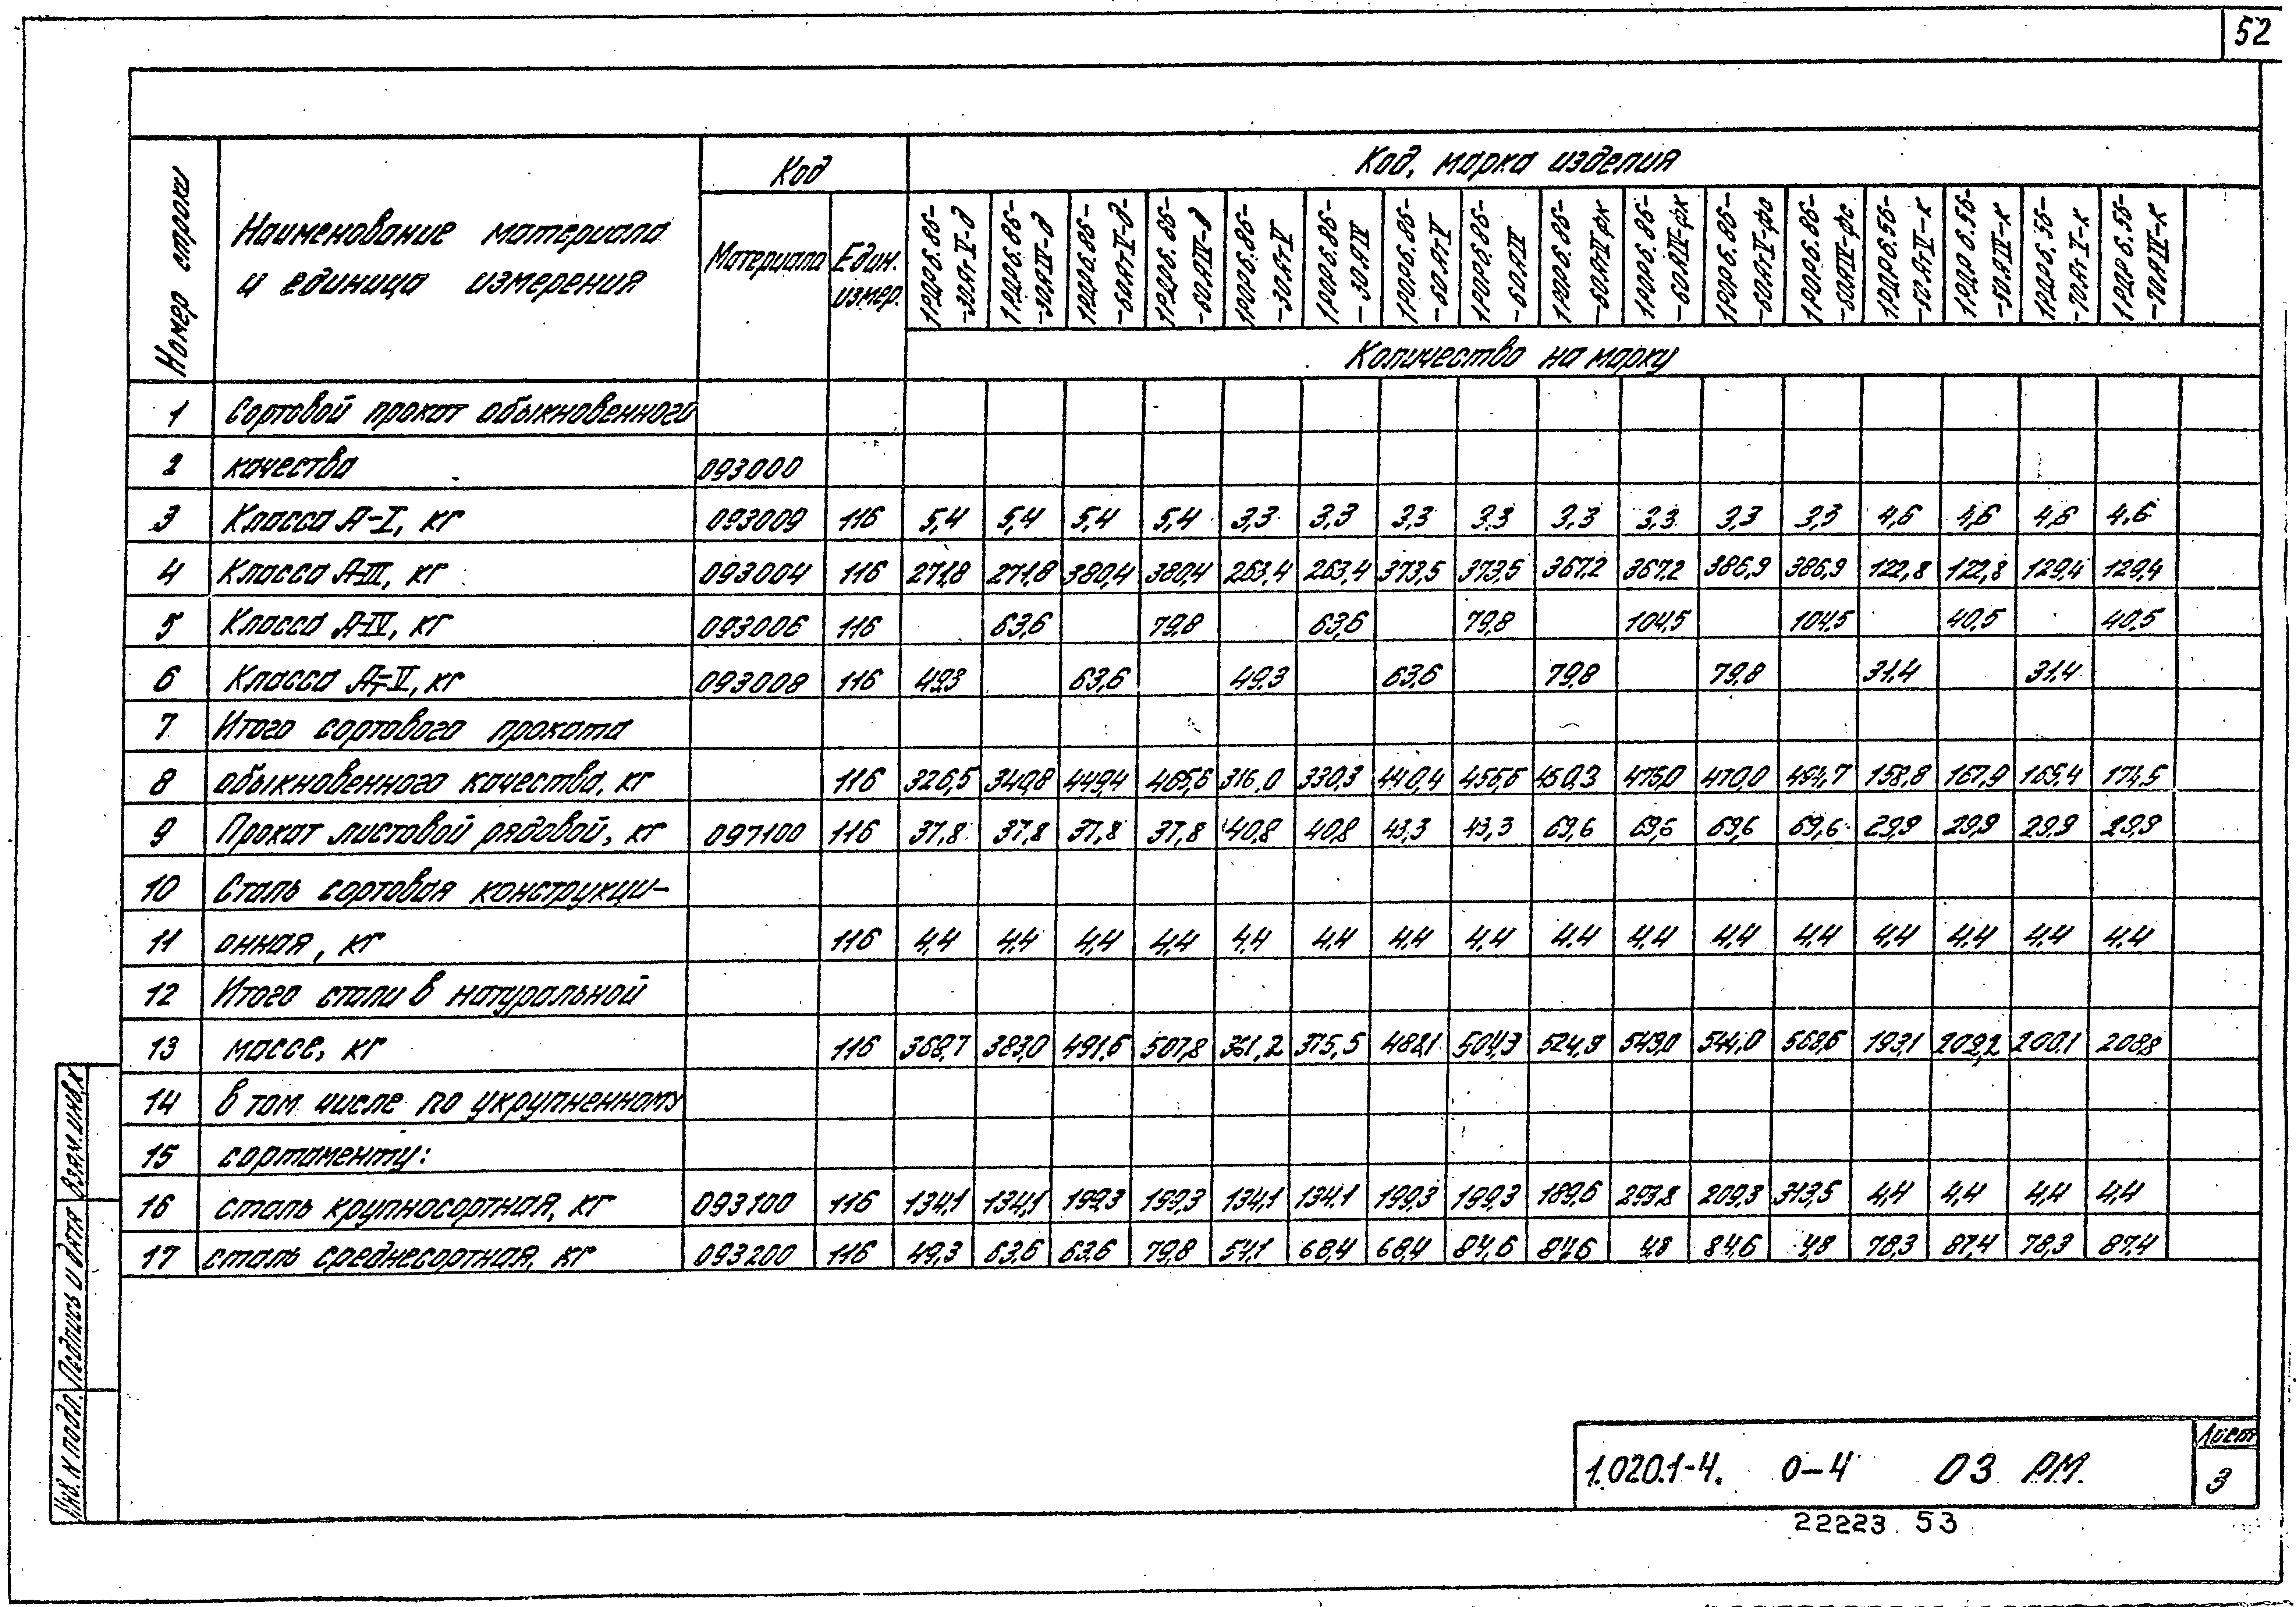 52
Номер строки
Наименование материала и единица измерения
Код
Код, марка изделия
Материала
Един. измер.
1РДР6.86-30АтV-д
1РДР6.86-30АIV-д
1РДР6.86-60АтV-д
1РДР6.86-60АIV-д
1РОР6.86-30АтV
1РОР6.86-30АIV
1РОР6.86-60АтV
1РОР6.86-60АIV
1РОР6.86-60АтV-фк
1РОР6.86-60АIV-фк
1РОР6.86-60АтV-фс
1РОР6.86-60АIV-фс
1РДР6.56-50АтV-к
1РДР6.56-50АIV-к
1РДР6.56-70АтV-к
1РДР6.56-70АIV-к
Количество на марку
1 Сортовой прокат обыкновенного
2 качества 093000
3 Класса А-I, кг 093009 116 5,4 5,4 5,4 5,4 3,3 3,3 3,3 3,3 3,3 3,3 3,3 3,3 4,6 4,6 4,6 4,6
4 Класса А-III, кг 093004 116 271,8 271,8 380,4 380,4 263,4 263,4 373,5 373,5 367,2 367,2 386,9 386,9 122,8 122,8 129,4 129,4
5 Класса А-IV, кг 093006 116 63,6 79,8 63,6 79,8 104,5 104,5 40,5 40,5
6 Класса Ат-V, кг 093008 116 49,3 63,6 49,3 63,6 79,8 79,8 31,4 31,4
7 Итого сортового проката
8 обыкновенного качества, кг 116 326,5 340,8 449,4 465,6 316,0 330,3 440,4 456,6 450,3 475,0 470,0 494,7 158,8 167,9 165,4 174,5
9 Прокат листовой рядовой, кг 097100 116 37,8 37,8 37,8 37,8 40,8 40,8 43,3 43,3 69,6 69,6 69,6 69,6 29,9 29,9 29,9 29,9
10 Сталь сортовая конструкци-
11 онная, кг 116 4,4 4,4 4,4 4,4 4,4 4,4 4,4 4,4 4,4 4,4 4,4 4,4 4,4 4,4 4,4 4,4
12 Итого стали в натуральной
13 массе, кг 116 368,7 383,0 491,6 507,8 361,2 375,5 488,1 504,3 524,3 549,0 544,0 568,6 193,1 202,2 200,1 208,8
14 в том числе по укрупненному
15 сортаменту:
16 сталь крупносортная, кг 093100 116 134,1 134,1 199,3 199,3 134,1 134,1 199,3 199,3 189,6 293,8 209,3 313,5 4,4 4,4 4,4 4,4
17 сталь среднесортная, кг 093200 116 49,3 63,6 63,6 79,8 54,1 68,4 68,4 84,6 84,6 4,8 84,6 4,8 78,3 87,4 78,3 87,4
Взам.инв.№
Подпись и дата
Инв. № подл.
1.020.1-4. 0-4 03 РМ
Лист
3
22223 53